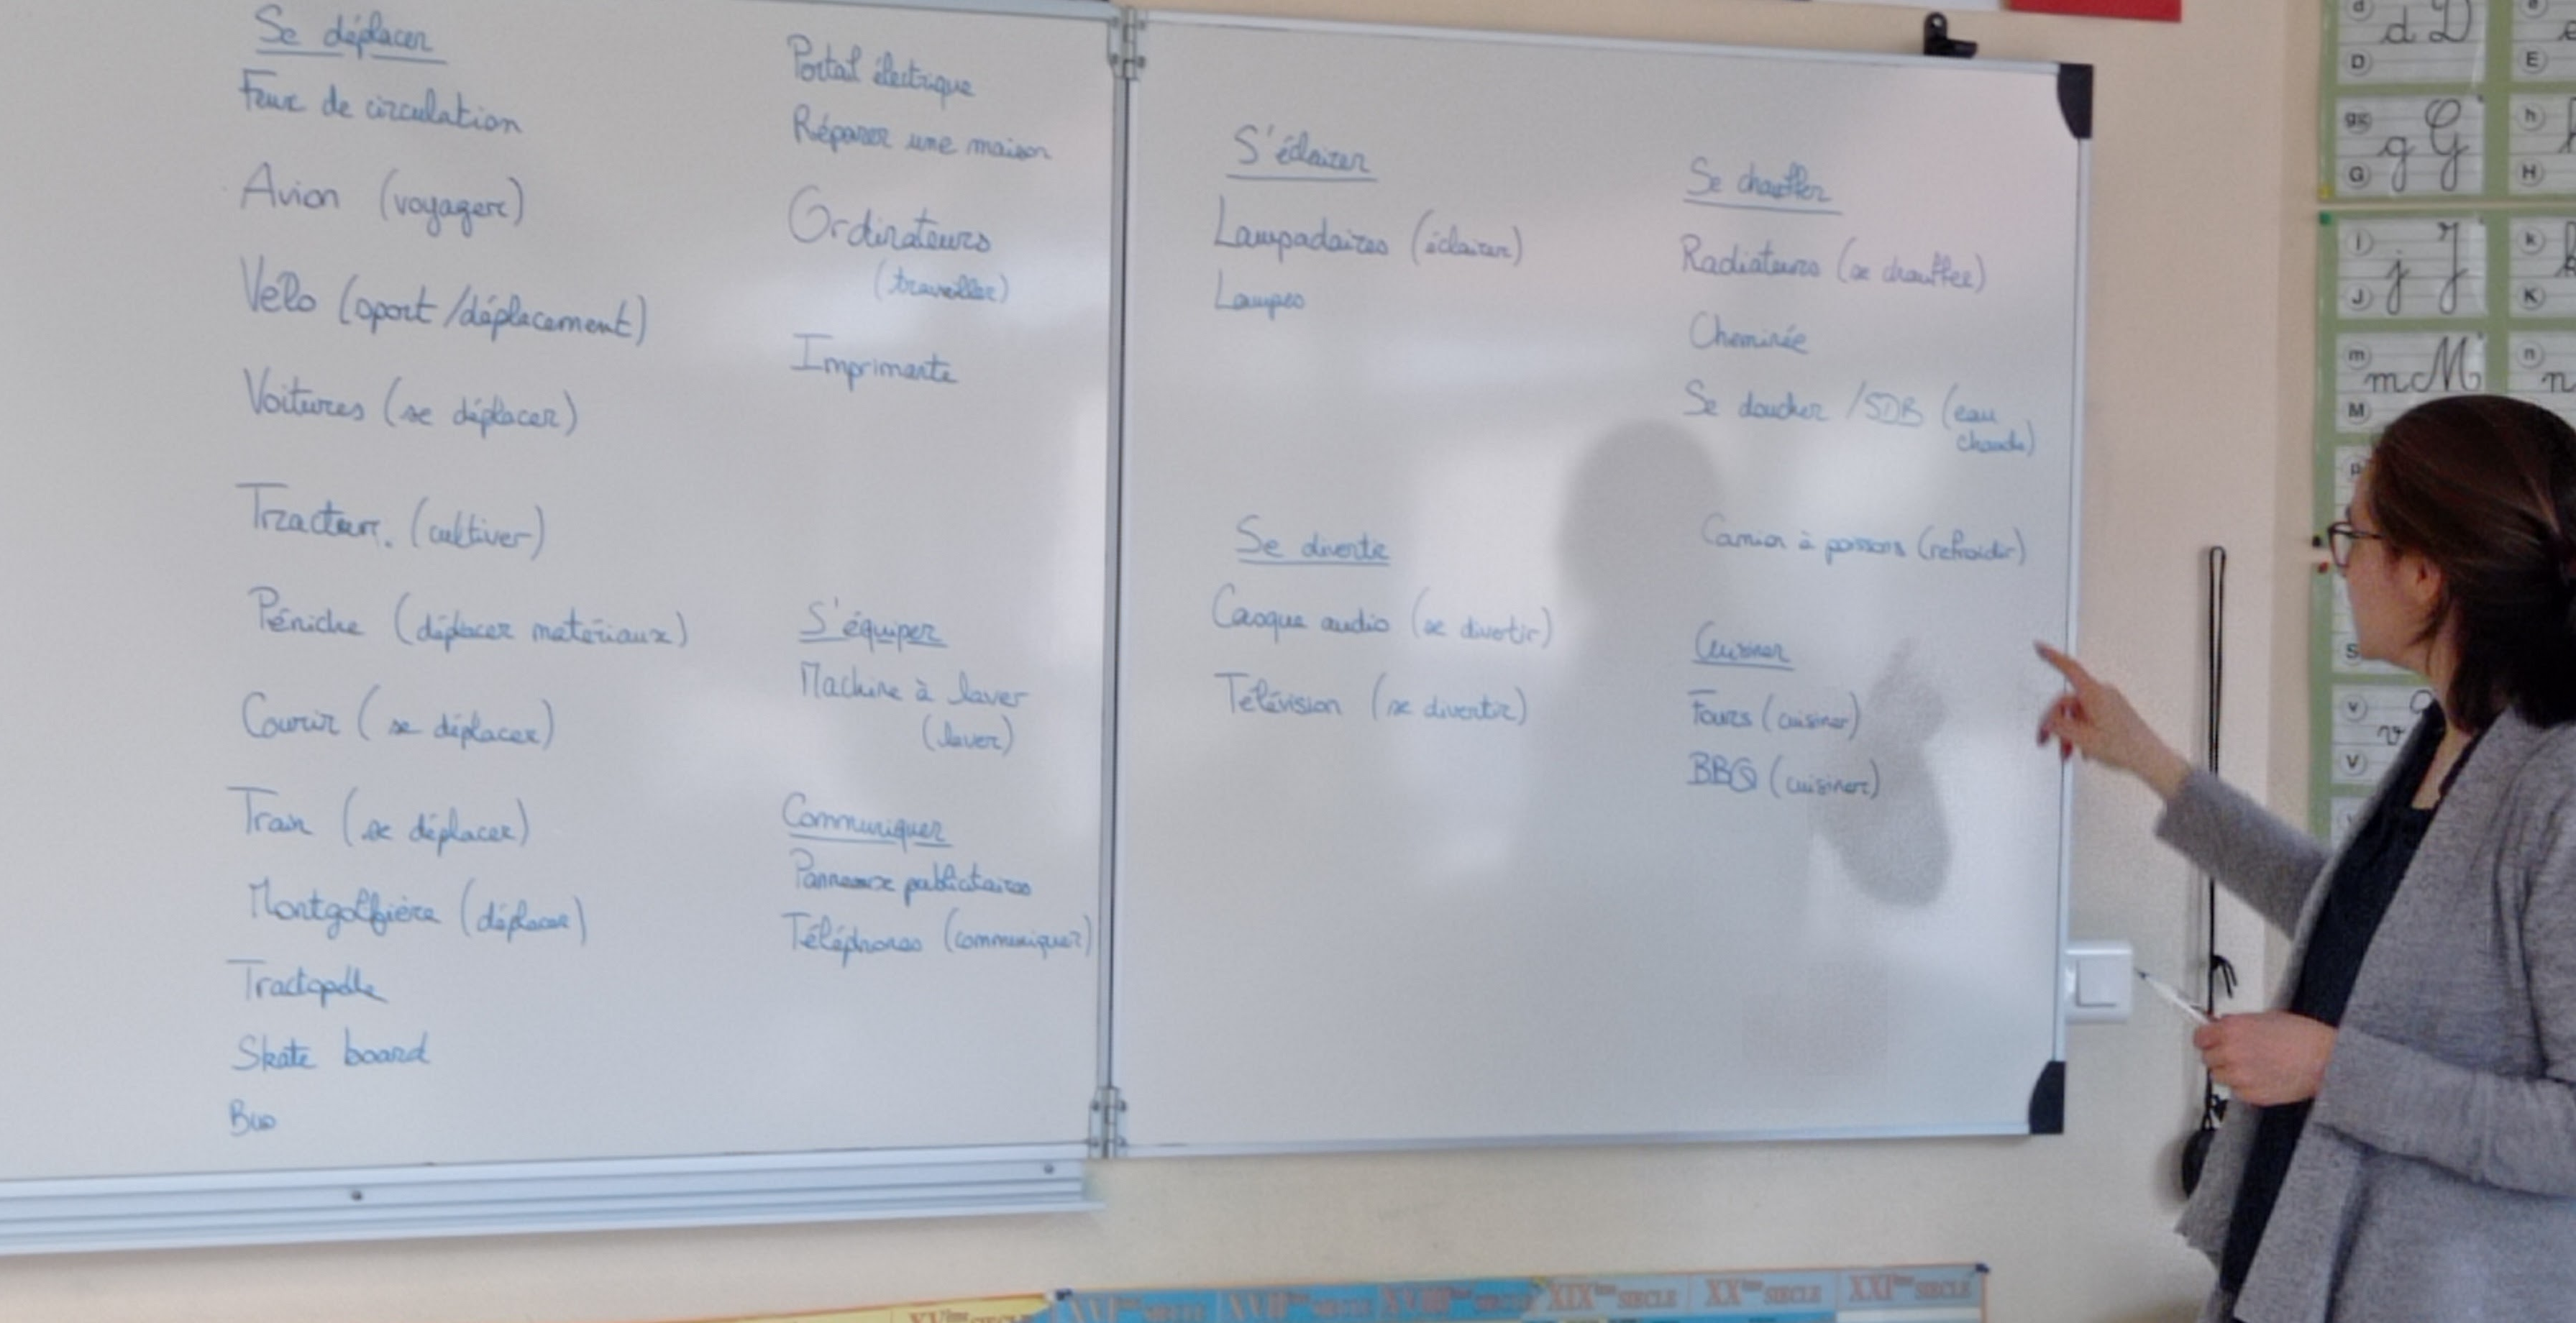 Se déplacer
Feux de circulation
Avion (voyager)
Vélo (sport/déplacement)
Voitures (se déplacer)
Tracteur. (cultiver)
Péniche (déplacer matériaux)
Courir (se déplacer)
Train (se déplacer)
Montgolfière (déplacer)
Tractopelle
Skate board
Bus
Portail électrique
Réparer une maison
Ordinateurs
(travailler)
Imprimante
S'équiper
Machine à laver
(laver)
Communiquer
Panneaux publicitaires
Téléphones (communiquer)
S'éclairer
Lampadaires (éclairer)
Lampes
Se divertir
Casque audio (se divertir)
Télévision (se divertir)
Se chauffer
Radiateurs (se chauffer)
Cheminée
Se doucher /SDB (eau
chaude)
Camion à poissons (refroidir)
Cuisiner
Fours (cuisiner)
BBQ (cuisiner)
d
d D
D
E
g
g G
G
h
H
j
j J
J
k
K
m
m M
M
n
n
S
v
v
V
XVème SIECLE
XVIème SIECLE
XVIIème SIECLE
XVIIIème SIECLE
XIXème SIECLE
XXème SIECLE
XXIème SIECLE